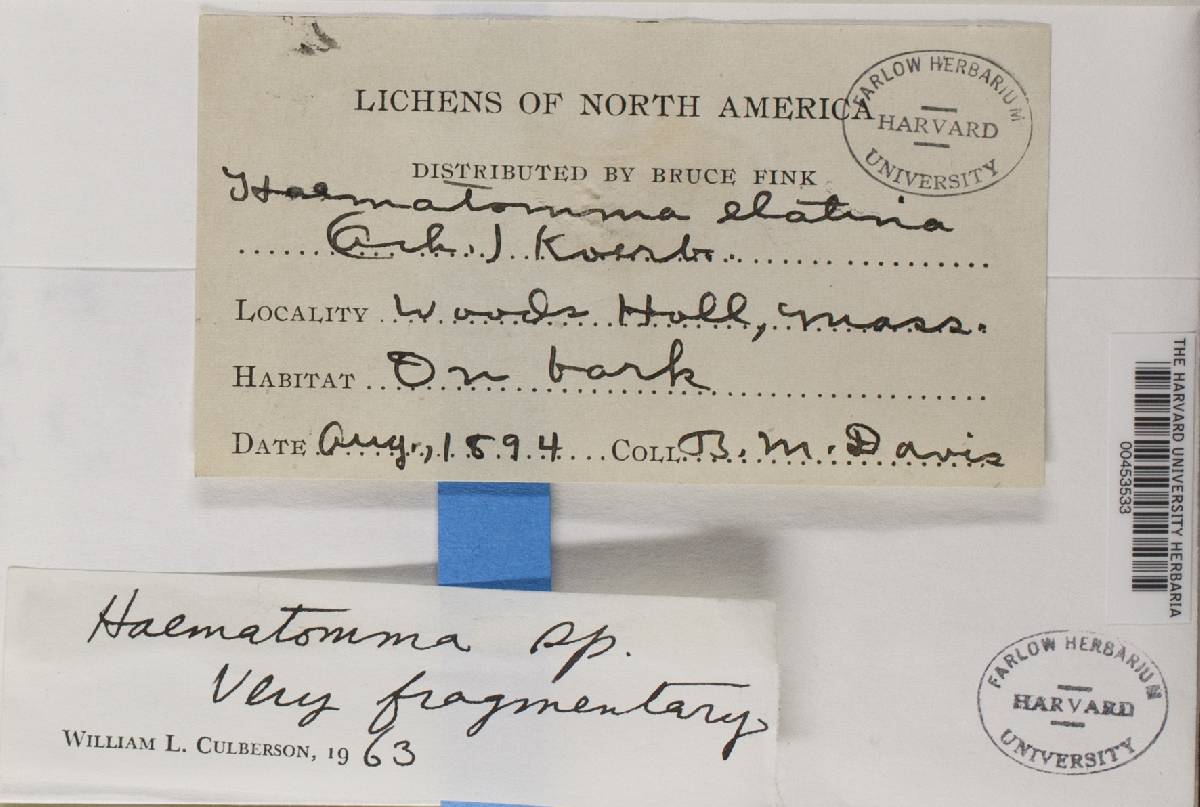 LICHENS OF NORTH AMERICA
DISTRIBUTED BY BRUCE FINK
Haematomma elatina
(Ach.) Koerb.
LOCALITY Woods Holl, Mass.
HABITAT On bark
DATE Aug., 1894 COLL. B. M. Davis
FARLOW HERBARIUM
HARVARD
UNIVERSITY
THE HARVARD UNIVERSITY HERBARIA
00453533
Haematomma sp.
Very fragmentary
WILLIAM L. CULBERSON, 1963
FARLOW HERBARIUM
HARVARD
UNIVERSITY